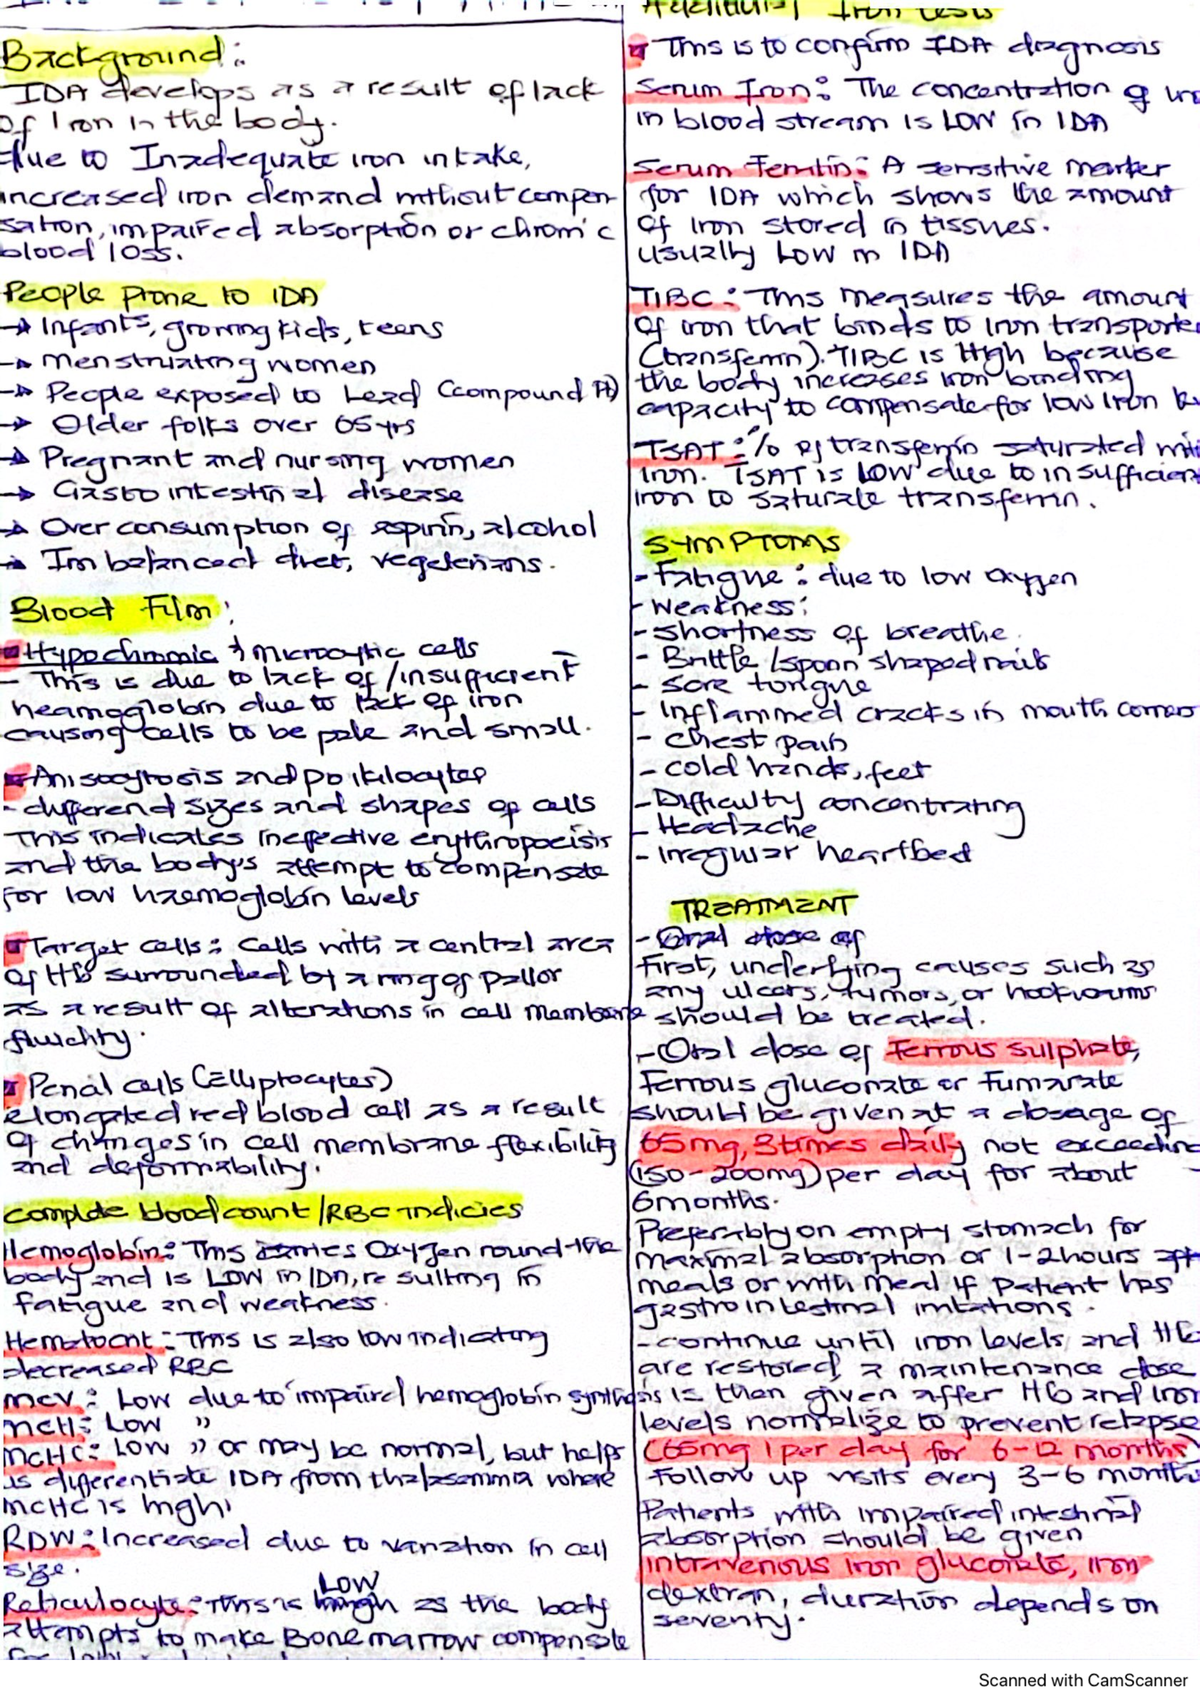 Background:
IDA develops as a result of lack
of Iron in the body.
due to Inadequate iron intake,
increased iron demand without compen-
sation, impaired absorption or chronic
blood loss.
People prone to IDA
→ Infants, growing kids, teens
→ menstruating women
→ People exposed to Lead (compound A)
→ Older folks over 65yrs
→ Pregnant and nursing women
→ Gastointestinal disease
→ Over consumption of aspirin, alcohol
→ Imbalanced diet, vegeterians.
Blood Film:
Hypochromic & microcytic cells
- This is due to lack of/insufficient
heamoglobin due to lack of iron
causing cells to be pale and small.
Anisocytosis and poikilocytes
- differend sizes and shapes of cells
This indicates ineffective erythropoeisis
and the body's attempt to compensate
for low haemoglobin levels
Target cells: cells with a central area
of Hb surrounded by a ring of pallor
as a result of alterations in cell membrane
fluidity.
Penal cells (Elliptocytes)
elongated red blood cell as a result
of changes in cell membrane flexibility
and deformability.
Complete blood count/RBC indicies
Hemoglobin: This carries Oxygen round the
body and is Low in IDA, resulting in
fatigue and weakness.
Hematocrit: This is also low indicating
decreased RBC
MCV: Low due to impaired hemoglobin synthesis
MCH: Low "
MCHC: Low " or may be normal, but helps
is differentiate IDA from thalasemmia where
MCHC is high.
RDW: Increased due to variation in cell
size.
Low
Reticulocyte: This is high as the body
attempts to make Bone marrow compensate
Additional Iron tests
This is to confirm IDA diagnosis
Serum Iron: The concentration of iro
in blood stream is Low in IDA
Serum Ferritin: A sensitive marker
for IDA which shows the amount
of iron stored in tissues.
usually Low in IDA
TIBC: This measures the amount
of iron that binds to iron transporte
(transferrin). TIBC is High because
the body increases iron binding
capacity to compensate for low iron
TSAT: % of transferrin saturated wit
iron. TSAT is Low due to insufficient
iron to saturate transferrin.
SYMPTOMS
- Fatigue: due to low oxygen
- weakness:
- shortness of breathe.
- Brittle/spoon shaped nails
- Sore tongue
- Inflammed cracks in mouth corners
- chest pain
- cold hands, feet
- Difficulty concentrating
- Headache
- Irregular heartbeat
TREATMENT
- Oral dose of
First, underlying causes such as
any ulcers, tumors, or hookworms
should be treated.
- Oral dose of Ferrous sulphate,
Ferrous gluconate or Fumarate
should be given at a dosage of
65mg, 3 times daily not exceeding
(150-200mg) per day for about
6months.
Preferably on empty stomach for
maximal absorption or 1-2hours aft
meals or with meal if patient has
gastrointestinal irritations.
- continue until iron levels and HG
are restored, a maintenance dose
is then given after HG and iron
levels normalize to prevent relapse
(65mg 1 per day for 6-12 months)
Follow up visits every 3-6 month
Patients with impaired intestinal
absorption should be given
intravenous iron gluconate, iron
dextran, duration depends on
severity.
Scanned with CamScanner